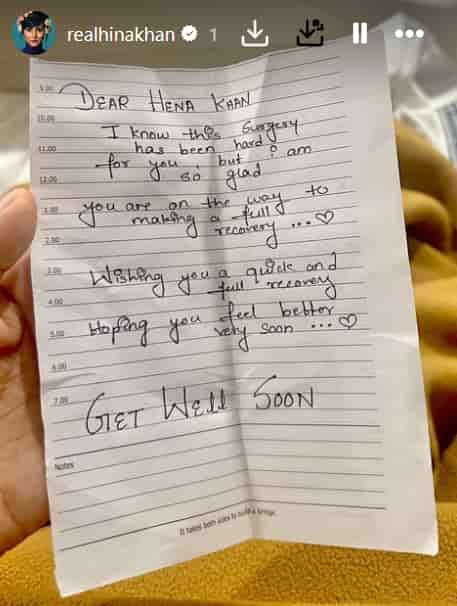 realhinakhan 1
9.00
DEAR HENA KHAN
10.00
I know this Surgery
11.00
has been hard
for you, but i am
12.00
so glad
1.00
you are on the way to
making a full
2.00
recovery ... ♡
3.00
Wishing you a quick and
full recovery
4.00
Hoping you feel better
5.00
very soon ... ♡
6.00
7.00
GET WELL SOON
Notes
It takes both sides to build a bridge.